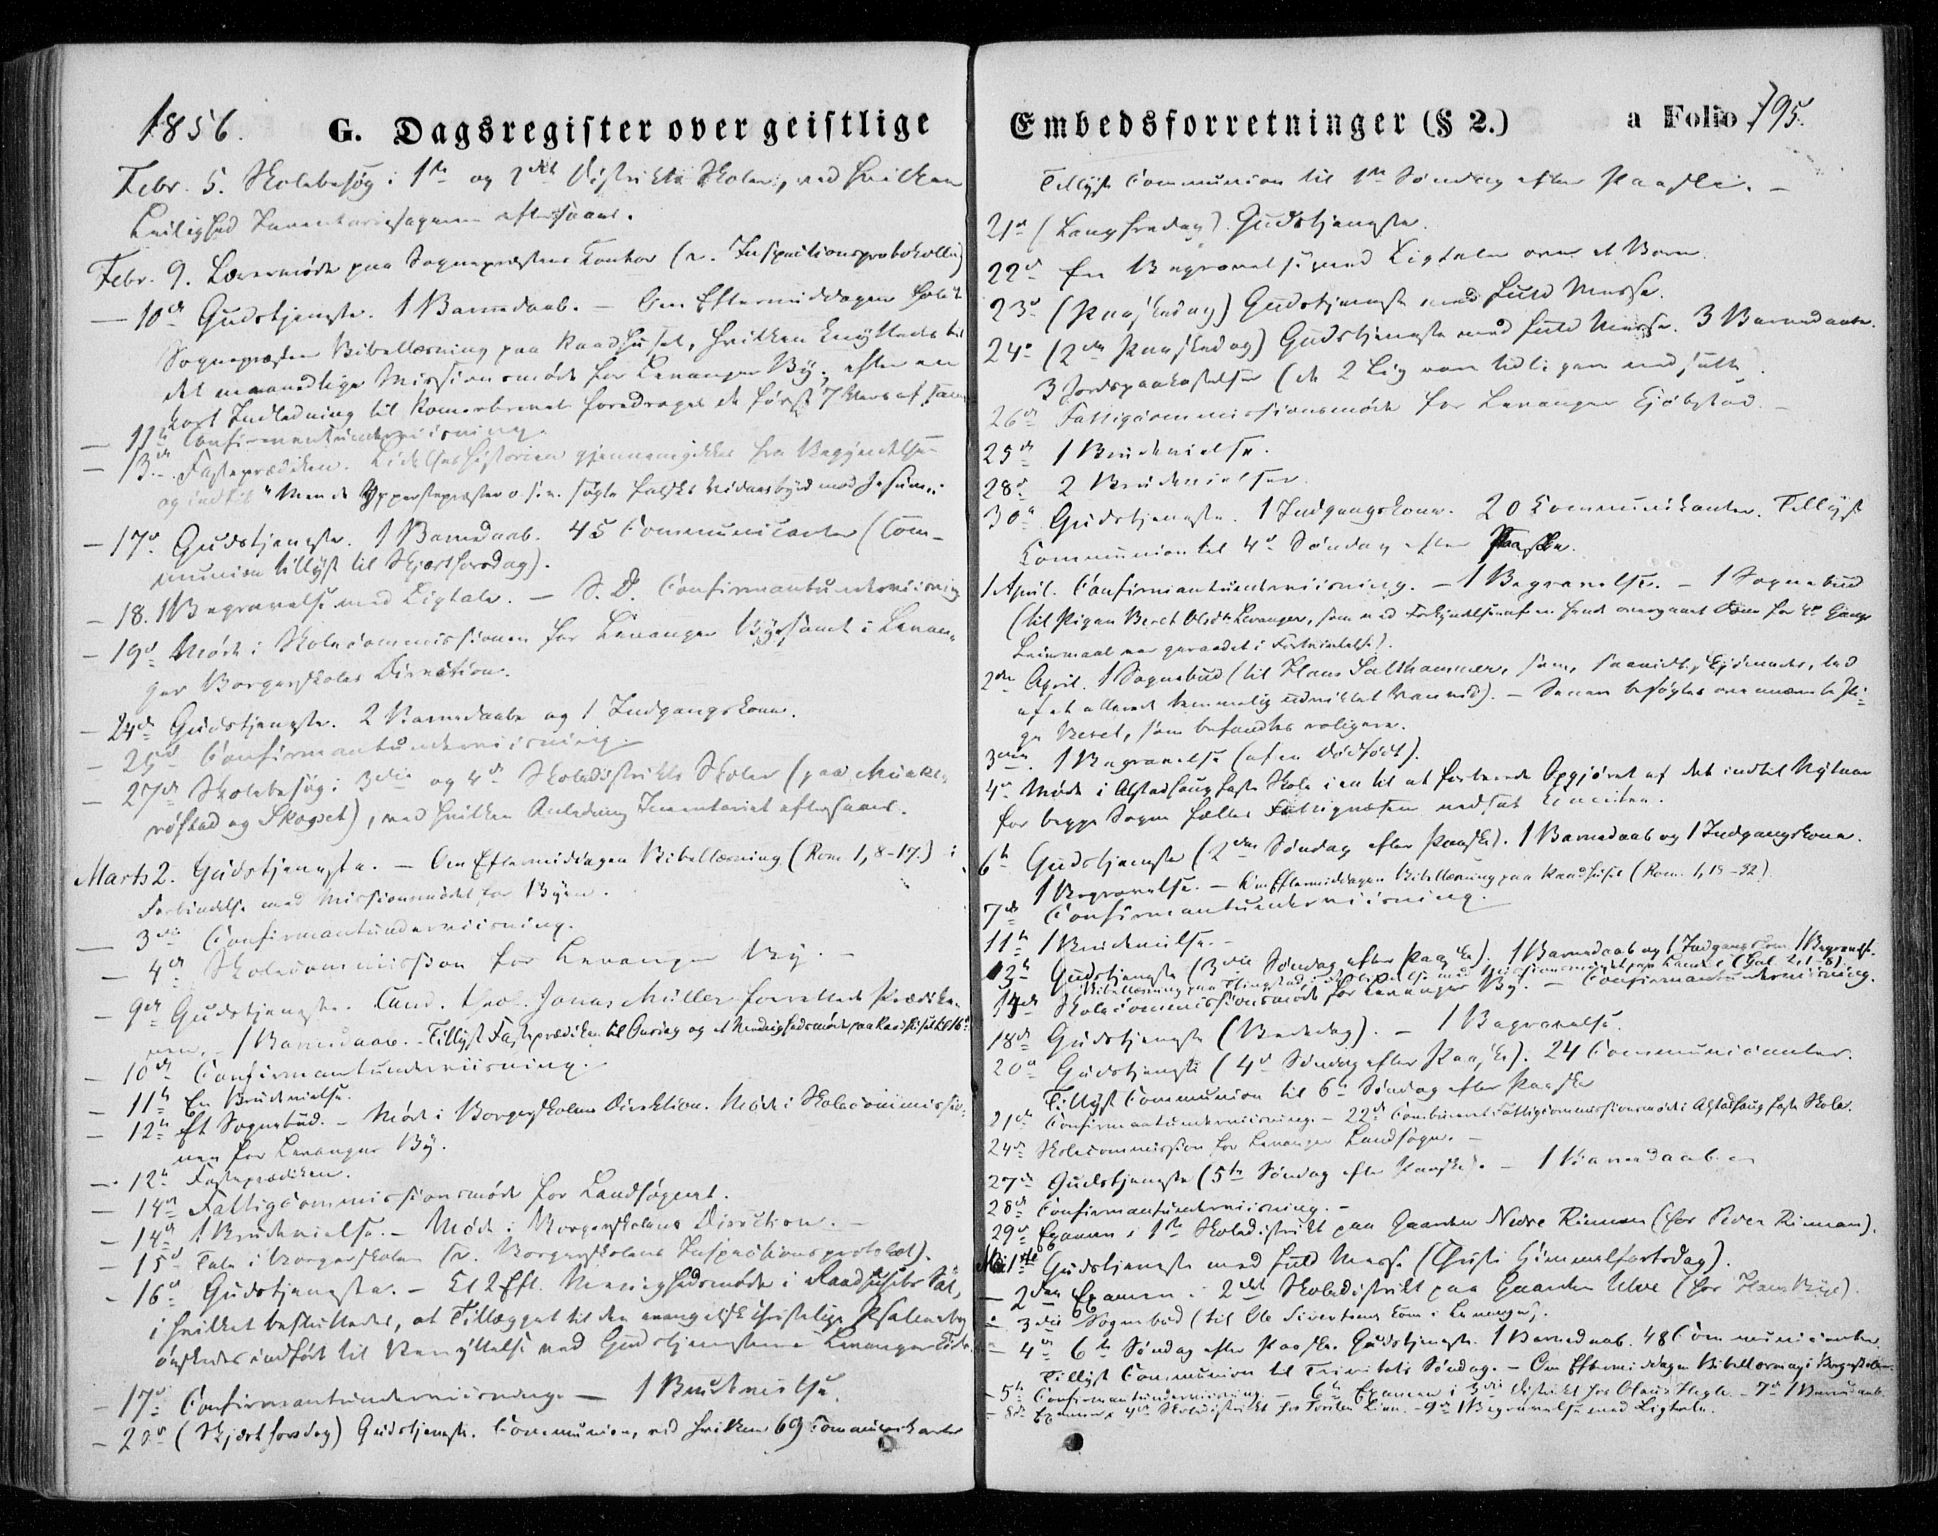 1856. G. Dagsregister over geistlige
Febr. 5. Skolebesøg i 1ste og 2det Distrikts Skoler, ved hvilken
Leilighed Inventariesagerne eftersaaes.
Febr. 9. Læremøde paa Sognepræstens Contor (v. Inspectionsprotokollen)
— 10de Gudstjeneste. 1 Barnedaab. — Om Eftermiddagen holdt
Sognepræsten Bibellæsning paa Raadhuset, hvilken knyttedes til
det maanedlige Missionsmøde for Levanger By; efter en
kort Indledning til Romerbrevet foredroges de første 7 Vers af samme
— 11te Confirmantunderviisning.
— 13de Fasteprædiken. Lidelseshistorien gjennemgikkes fra Begyndelsen
og indtil "Men de Ypperstepræster o.s.v. søgte falskt Vidnesbyrd mod Jesum".
— 17de Gudstjeneste. 1 Barnedaab. 45 Communicanter (Com-
munion tillyst til Skjærthorsdag).
— 18. 1 Begravelse med Ligtale. — S. D. Confirmantunderviisning
— 19de Møde i Skolecommissionen for Levanger By samt i Levan-
ger Borgerskoles Direction.
— 24de Gudstjeneste. 2 Barnedaabe og 1 Indgangskone.
— 25de Confirmantunderviisning.
— 27de Skolebesøg i 3die og 4de Skoledistrikts Skoler (paa
røstad og Skogset), ved hvilken Anledning Inventariet eftersaaes.
Marts 2. Gudstjeneste. — Om Eftermiddagen Bibellæsning (Rom. 1, 8-17.) i
Forbindelse med Missionsmødet for Byen.
— 3die Confirmantunderviisning.
— 4de Skolecommission for Levanger By. —
— 9de Gudstjeneste. Cand. theol. Jonas Müller forrettede Prædike-
nen. — 1 Barnedaab. — Tillyst Fasteprædiken til Onsdag og et Menighedsmøde paa Raadhuset til 16de
— 10de Confirmantunderviisning.
— 11te En Brudevielse.
— 12te Et Sognebud. — Møde i Borgerskolens Direktion. Møde i Skolecommissio-
nen for Levanger By.
— 12te Fasteprædiken.
— 14de Fattigcommissionsmøde for Landsognet.
— 14de 1 Brudevielse. — Møde i Borgerskolens Direction. —
— 15de Tale i Borgerskolen (v. Borgerskolens Inspectionsprotokol).
— 16de Gudstjeneste. — Kl 2 Eft. Menighedsmøde i Raadhusets Sal,
i hvilket besluttedes, at Tillægget til den evangelisk christelige Psalmebog
ønskedes indført til Benyttelse ved Gudstjenesterne i Levanger Kirke.
— 17de Confirmantunderviisning. — 1 Brudevielse.
— 20de (Skjærthorsdag) Gudstjeneste. Communion, ved hvilken 69 Communikanter
Embedsforretninger (§ 2.) a Folio 795.
Tillyst Communion til 1ste Søndag efter Paaske. —
21de (Langfredag) Gudstjeneste.
22de En Begravelse med Ligtale over et Barn.
23de (Paaskedag) Gudstjeneste med fuld Messe.
24de (2den Paaskedag) Gudstjeneste med fuld Messe. 3 Barnedaabe.
3 Jordspaakastelser (de 2 Lig vare tidligere nedsatte).
26de Fattigcommissionsmøde for Levanger Kjøbstad. —
25de 1 Brudevielse.
28de 2 Brudevielser.
30de Gudstjeneste. 1 Indgangskone. 20 Communikanter. Tillyst
Communion til 4de Søndag efter Paaske.
1 April. Confirmantunderviisning. — 1 Begravelse. — 1 Sognebud
(til Pigen Beret Olsdtr Levanger, som ved Forkyndelsen af en hende overgaaet Dom for 4de Gangs
Leiermaal var geraadet i Fortvivlelse).
2den April. 1 Sognebud (til Hans Salthammer, som, led
af et allerede temmelig udviklet Vanvid). — Senere besøgtes ovennævnte Pi-
ge Beret, som befandtes roligere.
3die 1 Begravelse (af en Dødfødt).
4de Møde i Alstadhaug faste Skole
for begge Sogne fælles Fattigvæsen nedsat Comitee.
6te Gudstjeneste (2den Søndag efter Paaske). 1 Barnedaab og 1 Indgangskone.
1 Begravelse. — Om Eftermiddagen Bibellæsning paa Raadhuset (Rom. 1, 18-32)
7de Confirmantunderviisning.
11te 1 Brudevielse. —
13de Gudstjeneste (3die Søndag efter Paaske). 1 Barnedaab og 1 Indgangskone. 1 Begravelse.
Bibellæsning paa Thingstad i Forbindelse med Missionsmødet paa Landet (Gal. 2, 1-8).
14de Skolecommissionsmøde for Levanger By. — Confirmantunderviisning.
18de Gudstjeneste (Bededag). — 1 Begravelse.
20de Gudstjeneste (4de Søndag efter Paaske). 24 Communicanter.
Tillyst Communion til 6te Søndag efter Paaske
21de Confirmantunderviisning. — 22de Combineret Fattigcommissionsmøde i Alstadhaug faste Skole.
24de Skolecommission for Levanger Landsogn. —
27de Gudstjeneste (5te Søndag efter Paaske). — 1 Barnedaab. —
28de Confirmantunderviisning. —
29de Examen i 1ste Skoledistrikt paa Gaarden Nedre Rinnan (hos Peder Rinnan).
Mai 1ste Gudstjeneste med fuld Messe (Christi Himmelfartsdag).
— 2den Examen i 2det Skoledistrikt paa Gaarden Ulve (hos Hans Bye).
— 3die Sognebud (til Ole Sivertsens Kone i Levanger).
— 4de 6te Søndag efter Paaske. Gudstjeneste. 1 Barnedaab. 48 Communicanter
Tillyst Communion til Trinitatis Søndag. — Om Eftermiddagen Bibellæsning i Borgerskolen.
— 5te Confirmantunderviisning. — 6te Examen i 3die Distrikt hos Olaus Hegle. — 7de 1 Barnedaab.
— 8de Examen i 4de Skoledistrikt hos Torsten Lian. — 9de 1 Begravelse med Ligtale.